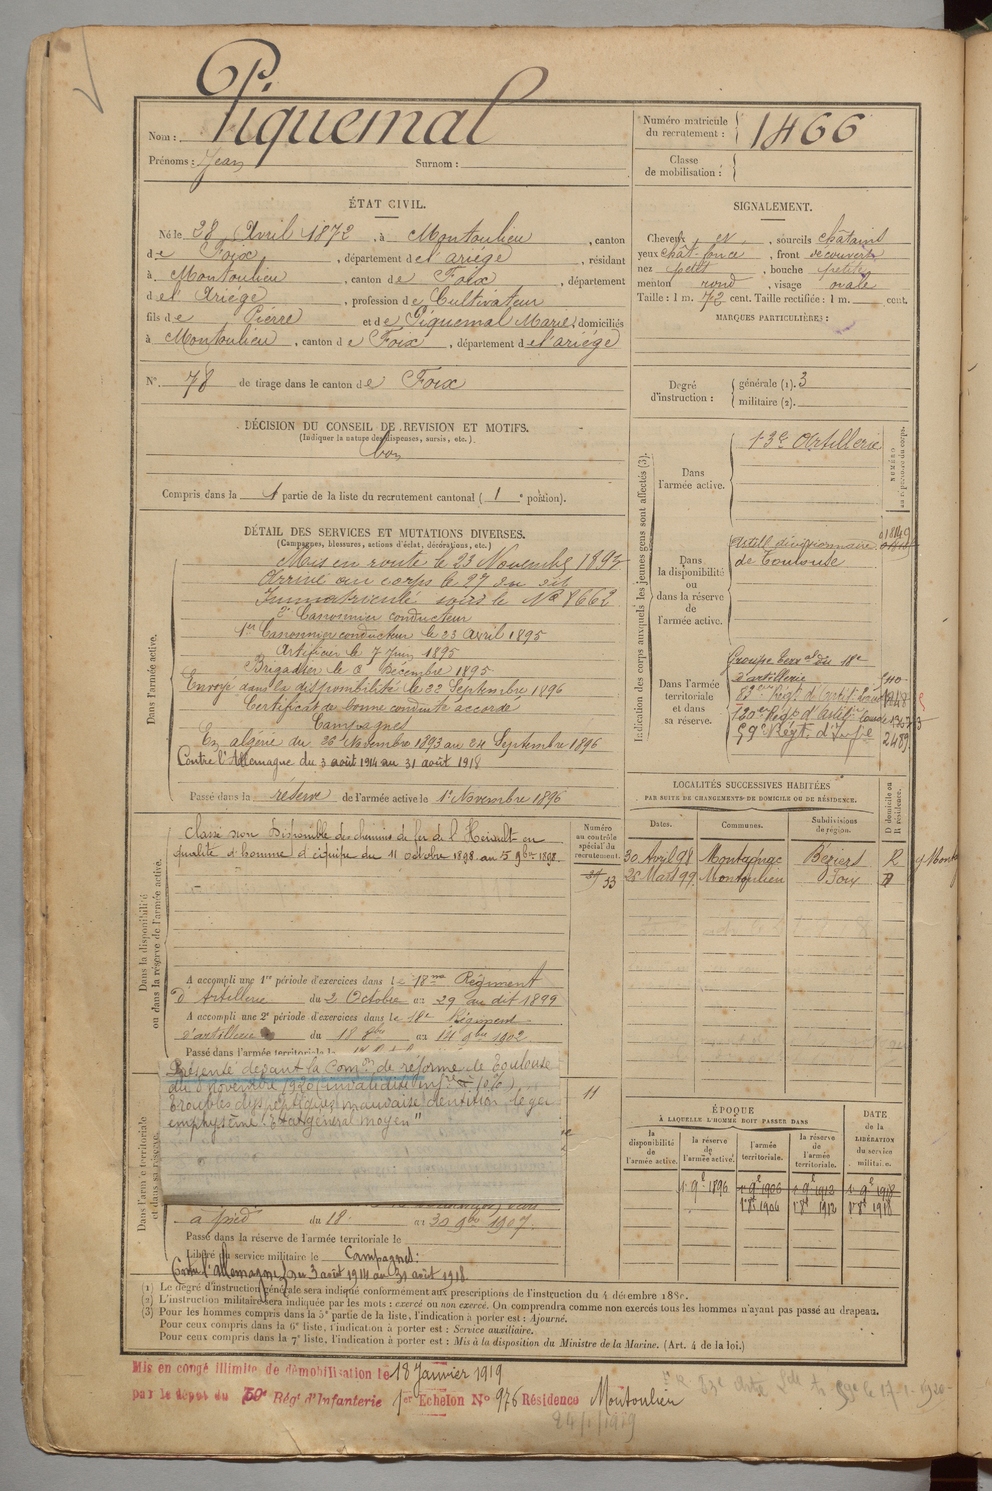 Nom : Piquemal
Prénoms : Jean Surnom :
Numéro matricule du recrutement : 1466
Classe de mobilisation :
ÉTAT CIVIL.
Né le 28 Avril 1872, à Montoulieu, canton
de Foix, département de l'ariège, résidant
à Montoulieu, canton de Foix, département
de l'Ariège, profession de Cultivateur
fils de Pierre et de Piquemal Marie, domiciliés
à Montoulieu, canton de Foix, département de l'ariège
N° 78 de tirage dans le canton de Foix
SIGNALEMENT.
Cheveux et, sourcils châtains
yeux chât-fonce, front découvert
nez petit, bouche petite
menton rond, visage ovale
Taille : 1 m. 72 cent. Taille rectifiée : 1 m. cent.
MARQUES PARTICULIÈRES :
Degré d'instruction : générale (1). 3
militaire (2).
DÉCISION DU CONSEIL DE REVISION ET MOTIFS.
(Indiquer la nature des dispenses, sursis, etc.)
bon
Compris dans la 1 partie de la liste du recrutement cantonal (1e portion).
DÉTAIL DES SERVICES ET MUTATIONS DIVERSES.
(Campagnes, blessures, actions d'éclat, décorations, etc.)
Dans l'armée active.
Mis en route le 23 Novembre 1893
Arrivé au corps le 27 du dit
Immatriculé sous le No 8662
2e Canonnier conducteur
1er Canonnier conducteur le 23 avril 1895
Artificier le 7 Juin 1895
Brigadier le 8 Décembre 1895
Envoyé dans la disponibilité le 22 Septembre 1896
Certificat de bonne conduite accordé
Campagnes
En algérie du 26 Novembre 1893 au 24 Septembre 1896
Contre l'Allemagne du 3 août 1914 au 31 août 1918
Passé dans la réserve de l'armée active le 1er Novembre 1896
Indication des corps auxquels les jeunes gens sont affectés (3).
NUMÉRO
Dans l'armée active. 13e Artillerie
Dans la disponibilité ou dans la réserve de l'armée active.
Artill divisionnaire
de Toulouse
Dans l'armée territoriale et dans sa réserve.
Groupe terr al du 18e
d'artillerie
59e Régt d'Infie
2489
LOCALITÉS SUCCESSIVES HABITÉES
PAR SUITE DE CHANGEMENTS DE DOMICILE OU DE RÉSIDENCE.
D domicile ou R résidence.
Dates. Communes. Subdivisions de région.
30 Avril 98 Montagnac Béziers R
25 Mars 99 Montoulieu Foix D
Dans la disponibilité ou dans la réserve de l'armée active.
Numéro au contrôle spécial du recrutement.
33
Classé non Disponible des chemins de fer de l'Hérault en
qualité d'homme d'équipe du 11 octobre 1898 au 5 9bre 1898.
A accompli une 1re période d'exercices dans le 18me Régiment
d'Artillerie du 2 Octobre au 29 au dit 1899
A accompli une 2e période d'exercices dans le 18e Régiment
d'artillerie du 18 8bre au 14 9bre 1902
Passé dans l'armée territoriale le
Dans l'armée territoriale et dans sa réserve.
Présenté devant la Comon de réforme de Toulouse
du 8 novembre 1920 invalidité infre à 10%
Troubles dyspeptiques mauvaise dentition léger
emphysème. "Etat général moyen"
11
à pied du 18 au 30 9bre 1907
Passé dans la réserve de l'armée territoriale le
Libéré du service militaire le
Campagnes :
Contre l'Allemagne du 3 août 1914 au 31 août 1918
ÉPOQUE
À LAQUELLE L'HOMME DOIT PASSER DANS
la disponibilité de l'armée active. la réserve de l'armée active. l'armée territoriale. la réserve de l'armée territoriale.
DATE de la LIBÉRATION du service militaire.
1er 9bre 1896 1er 9bre 1906 1er 9bre 1912 1er 9bre 1918
1er 8bre 1906 1er 8bre 1912 1er 8bre 1918
(1) Le degré d'instruction générale sera indiqué conformément aux prescriptions de l'instruction du 4 décembre 1889.
(2) L'instruction militaire sera indiquée par les mots : exercé ou non exercé. On comprendra comme non exercés tous les hommes n'ayant pas passé au drapeau.
(3) Pour les hommes compris dans la 5e partie de la liste, l'indication à porter est : Ajourné.
Pour ceux compris dans la 6e liste, l'indication à porter est : Service auxiliaire.
Pour ceux compris dans la 7e liste, l'indication à porter est : Mis à la disposition du Ministre de la Marine. (Art. 4 de la loi.)
Mis en congé illimité de démobilisation le 18 Janvier 1919
par le dépôt du 59e Rég t d'Infanterie 1er Echelon No 976 Résidence Montoulieu
24/1/1919